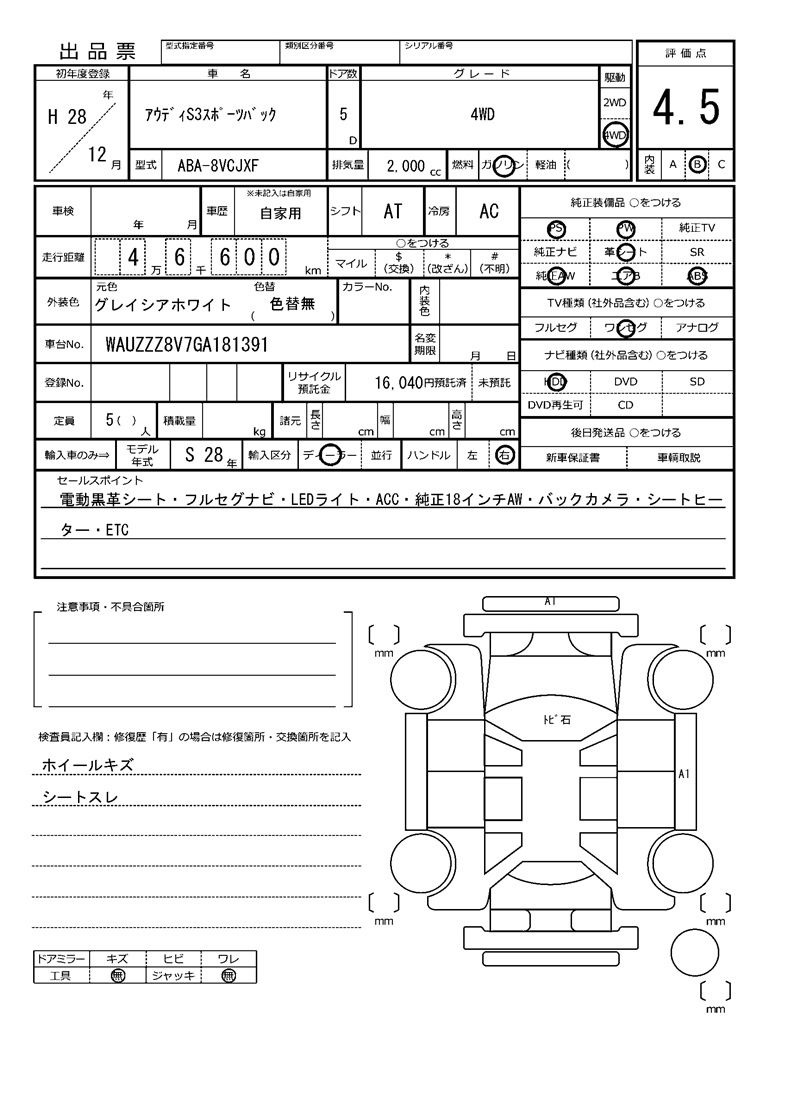 出品票
型式指定番号 類別区分番号 シリアル番号
評価点
初年度登録 車 名 ドア数 グレード 駆動
H 28 年 12 月
アウディS3スポーツバック
5 D
4WD
2WD
4WD
4.5
型式 ABA-8VCJXF 排気量 2,000 cc 燃料 ガソリン 軽油 ( )
内装 A B C
車検 年 月 車歴 ※未記入は自家用 自家用 シフト AT 冷房 AC
純正装備品 ○をつける
PS PW 純正TV
走行距離 4 万 6 千 6 0 0 km
○をつける
マイル $ (交換) * (改ざん) # (不明)
純正ナビ 革シート SR
純正AW エアB ABS
外装色 元色 グレイシアホワイト 色替 ( 色替無 ) カラーNo. 内装色
TV種類(社外品含む)○をつける
フルセグ ワンセグ アナログ
車台No. WAUZZZ8V7GA181391 名変期限 月 日
ナビ種類(社外品含む)○をつける
登録No. リサイクル預託金 16,040円預託済 未預託
HDD DVD SD
DVD再生可 CD
定員 5( ) 人 積載量 kg 諸元 長さ cm 幅 cm 高さ cm
後日発送品 ○をつける
輸入車のみ⇒ モデル年式 S 28 年 輸入区分 ディーラー 並行 ハンドル 左 右
新車保証書 車輌取説
セールスポイント
電動黒革シート・フルセグナビ・LEDライト・ACC・純正18インチAW・バックカメラ・シートヒー
ター・ETC
注意事項・不具合箇所
A1
mm mm
トビ石
検査員記入欄：修復歴「有」の場合は修復箇所・交換箇所を記入
ホイールキズ
A1
シートスレ
mm mm
ドアミラー キズ ヒビ ワレ
工具 無 ジャッキ 無
mm